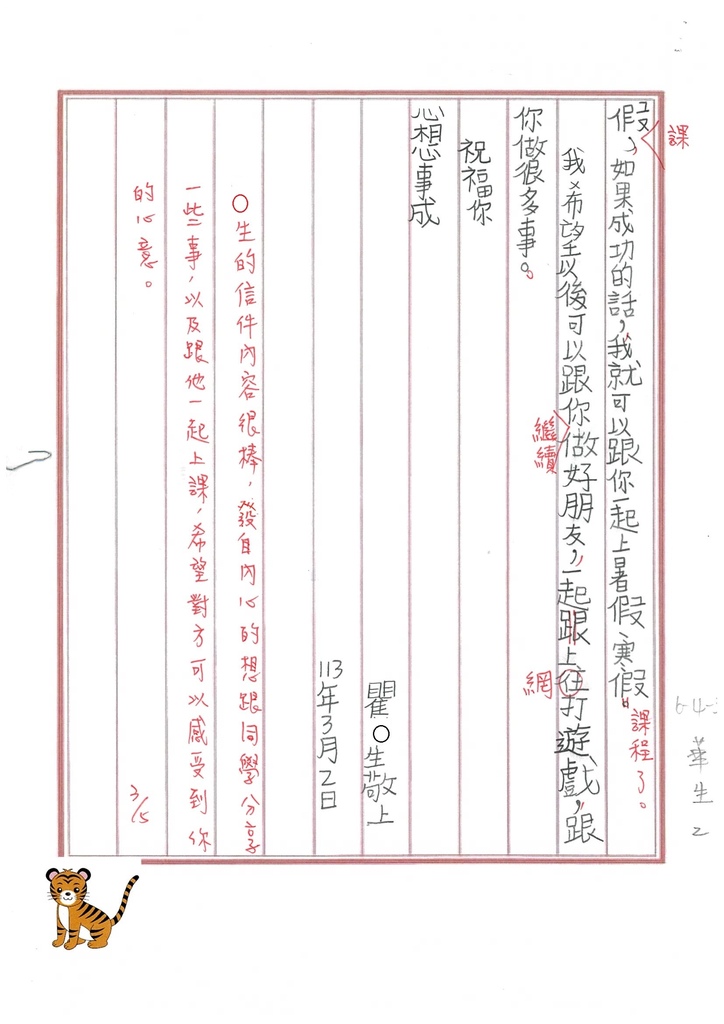 假,如果成功的話,我就可以跟你一起上暑假、寒假。
課
課程了。
我希望以後可以跟你做好朋友,一起跟上往打遊戲,跟
繼續
網
你做很多事。
祝福你
心想事成
瞿○生敬上
113年3月2日
○生的信件內容很棒,發自內心的想跟同學分享
一些事,以及跟他一起上課,希望對方可以感受到你
的心意。
3/5
6-4-3
華
生
2